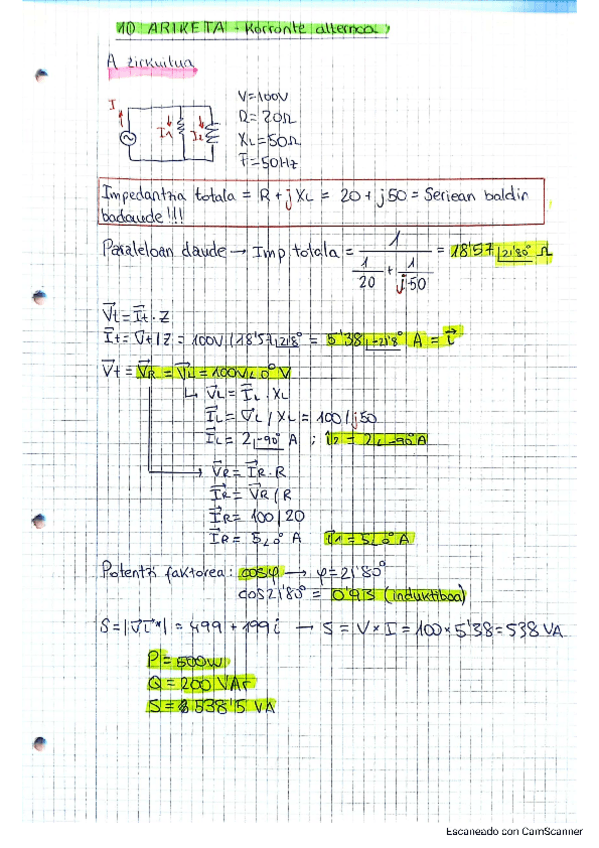 10 ARIKETA - Korronte alternoa
A zirkuitua
I
I1
I2
V=100V
R=20Ω
XL=50Ω
F=50Hz
Impedantzia totala = R+jXL = 20+j50 = Seriean baldin
badaude!!!
Paraleloan daude → Imp totala = 1 / (1/20 + 1/j50) = 18'57∠21'80° Ω
Vt=It·Z
It=Vt/Z=100V/18'57∠21'8° = 5'38∠-21'8° A = i
Vt=VR=VL=100V∠0°V
↳ VL=IL·XL
IL=VL/XL=100/j50
IL=2∠-90° A ; i2=2∠-90°A
VR=IR·R
IR=VR/R
IR=100/20
IR=5∠0° A i1=5∠0°A
Potentzi faktorea: cosφ → φ=21'80°
cos21'80° = 0'93 (induktiboa)
S=|VI*|=499+199i → S=V×I=100×5'38=538 VA
P=500W
Q=200 VAr
S=538'5 VA
Escaneado con CamScanner